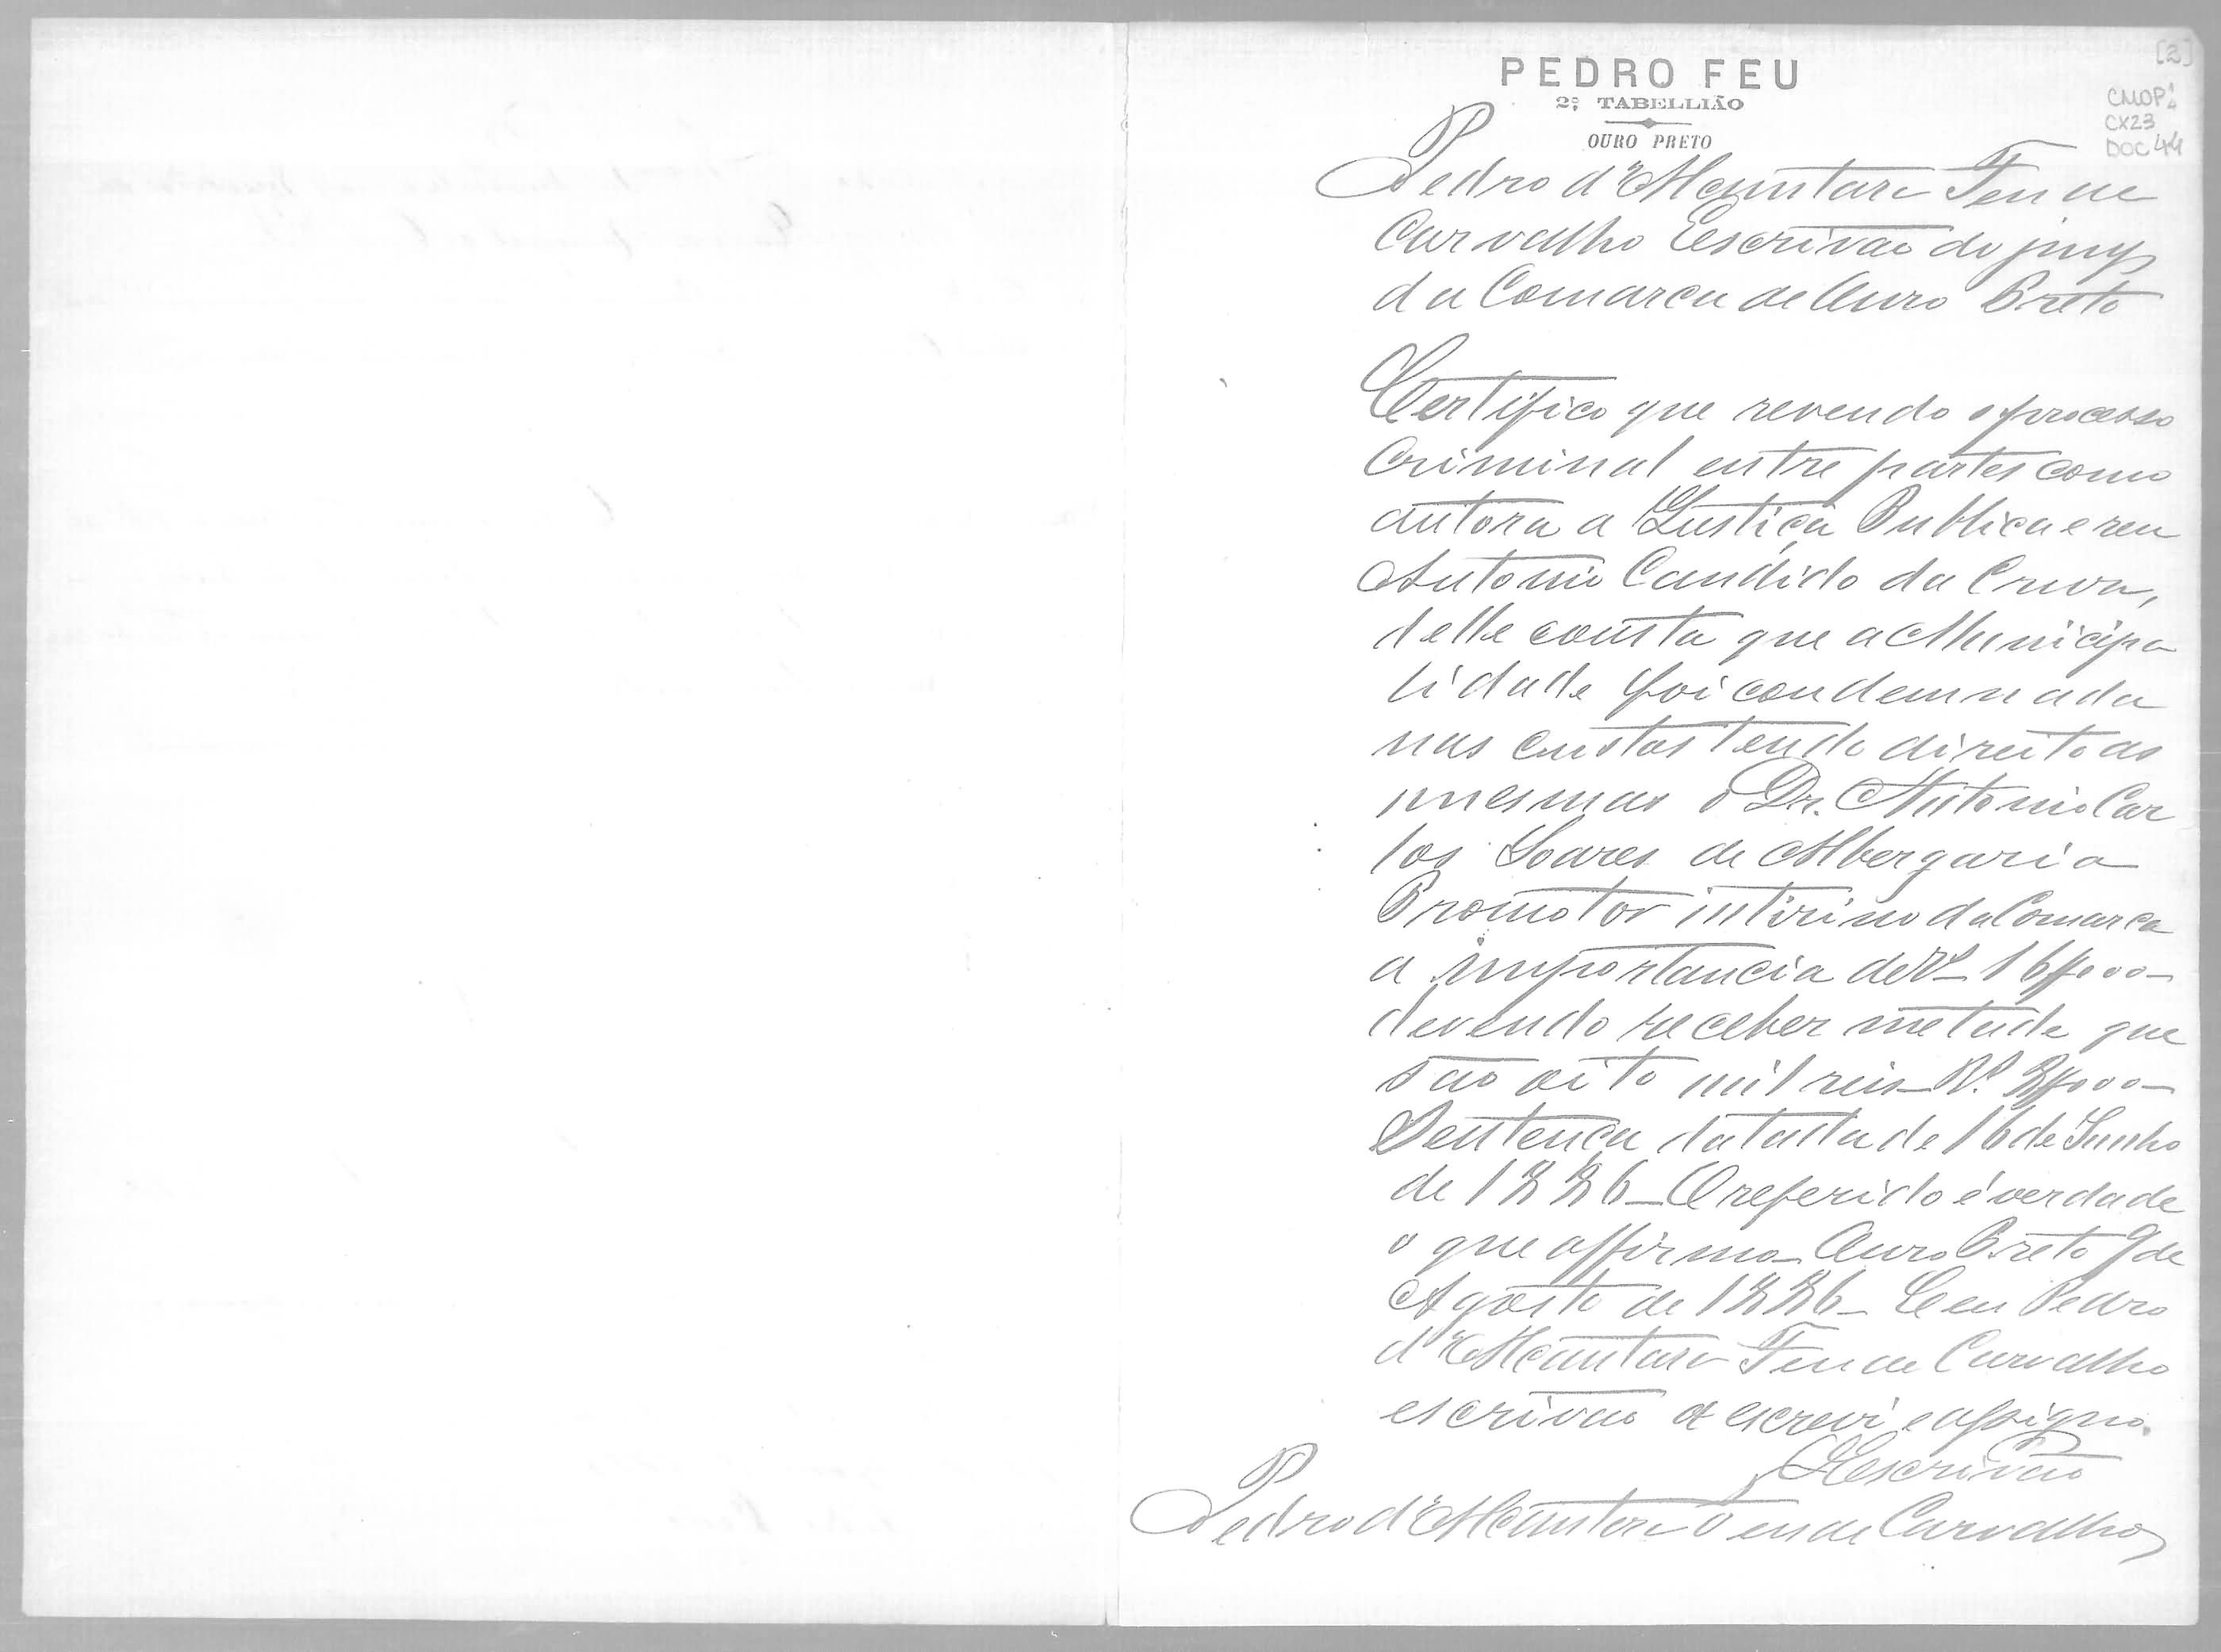 [2]
CMOP
CX23
DOC 44
PEDRO FEU
2º TABELLIÃO
OURO PRETO
Pedro d'Alcantara Feu de
Carvalho Escrivão do jury
da Comarca de Ouro Preto
Certifico que revendo o processo
Criminal entre partes como
autora a Justiça Publica e reu
Antonio Candido da
delle consta que a Municipa
lidade foi condemnada
nas custas tendo direito as
mesmas o Dr. Antonio Car
los Soares de Albergaria
Promotor intirino da Comarca
a importancia de Rs 16$000
devendo receber metade que
são oito mil reis Rs. 8$000
Sentença datada de 16 de Junho
de 1886 O referido é verdade
o que affirmo Ouro Preto 9 de
Agosto de 1886 Eu Pedro
d'Alcantara Feu de Carvalho
escrivão escrevi e assigno.
O Escrivão
Pedro d'Alcantara Feu de Carvalho